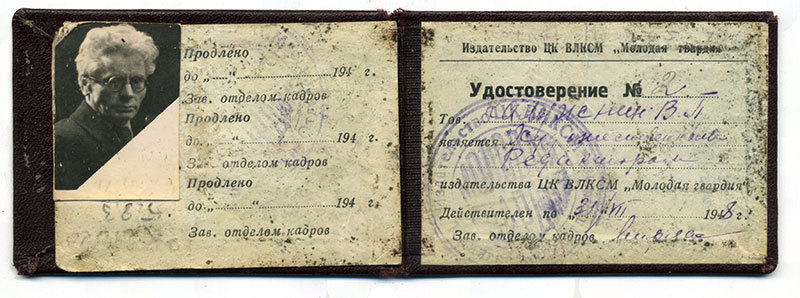 Продлено
до „ “ 194 г.
Зав. отделом кадров
Продлено
до „ “ 194 г.
Зав. отделом кадров
Продлено
до „ “ 194 г.
Зав. отделом кадров
Издательство ЦК ВЛКСМ „Молодая гвардия“
Удостоверение № 2
Тов. В.П.
является Художественным
Редактором
издательства ЦК ВЛКСМ „Молодая гвардия“
Действителен по „31“ VII 1948 г.
Зав. отделом кадров